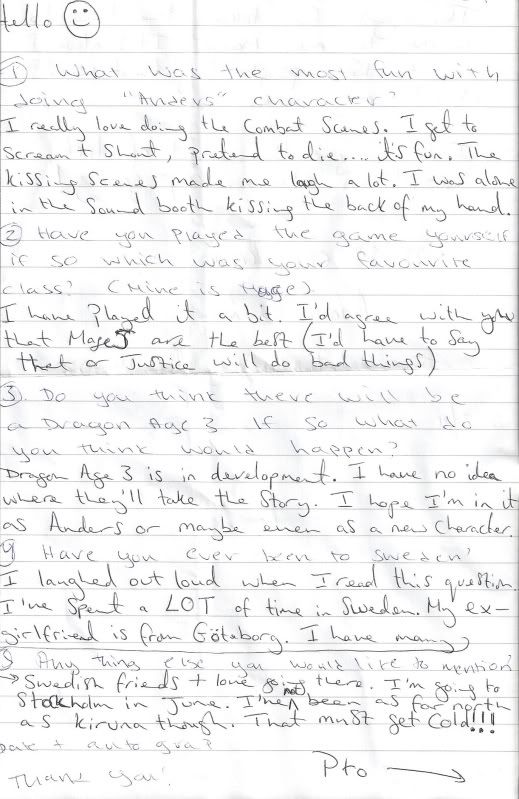 Hello ☺
① What was the most fun with
doing "Anders" character?
I really love doing the Combat Scenes. I get to
Scream + Shout, pretend to die.... it's fun. The
kissing Scenes made me laugh a lot. I was alone
in the Sound booth kissing the back of my hand.
② Have you played the game yourself
if so which was your favourite
class? (Mine is Mage)
I have Played it a bit. I'd agree with you
that Mages are the best (I'd have to say
that or Justice will do bad things)
③. Do you think there will be
a Dragon Age 3 If so what do
you think would happen?
Dragon Age 3 is in development. I have no idea
where they'll take the Story. I hope I'm in it
as Anders or maybe even as a new Character.
4 Have you ever been to Sweden?
I laughed out loud when I read this question.
I've Spent a LOT of time in Sweden. My ex-
girlfriend is from Göteborg. I have many
5 Any thing else you would like to mention?
→ Swedish friends + love going there. I'm going to
Stockholm in June. I've not been as far north
as Kiruna though. That must get Cold!!!
Date + autograf?
Thank you!
Pto →